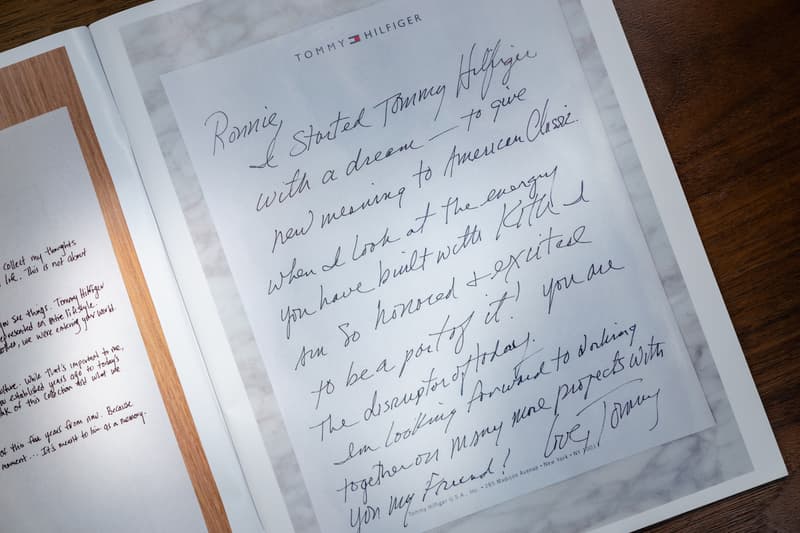 collect my thoughts
life. This is not about
you see things. Tommy Hilfiger
represented an entire lifestyle.
we were entering your world.
While that's important to me,
you established years ago to today's
of this collection and what we
for this five years from now. Because
moment... It's meant to him as a memory.
TOMMY HILFIGER
Ronnie,
I Started Tommy Hilfiger
with a dream — to give
new meaning to American Classic.
when I look at the energy
you have built with Kith I
am so honored & excited
to be a part of it! you are
The disruptor of today.
I'm looking forward to working
together on many more projects with
you my Friend! Love, Tommy
Tommy Hilfiger U.S.A., Inc. • 285 Madison Avenue • New York • NY 10017